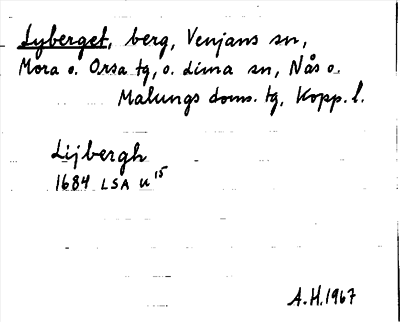 Lyberget, berg, Venjans sn,
Mora o. Orsa tg, o. Lima sn, Nås o.
Malungs doms. tg, Kopp. l.
Lijbergh
1684 LSA U 15
A.H. 1967